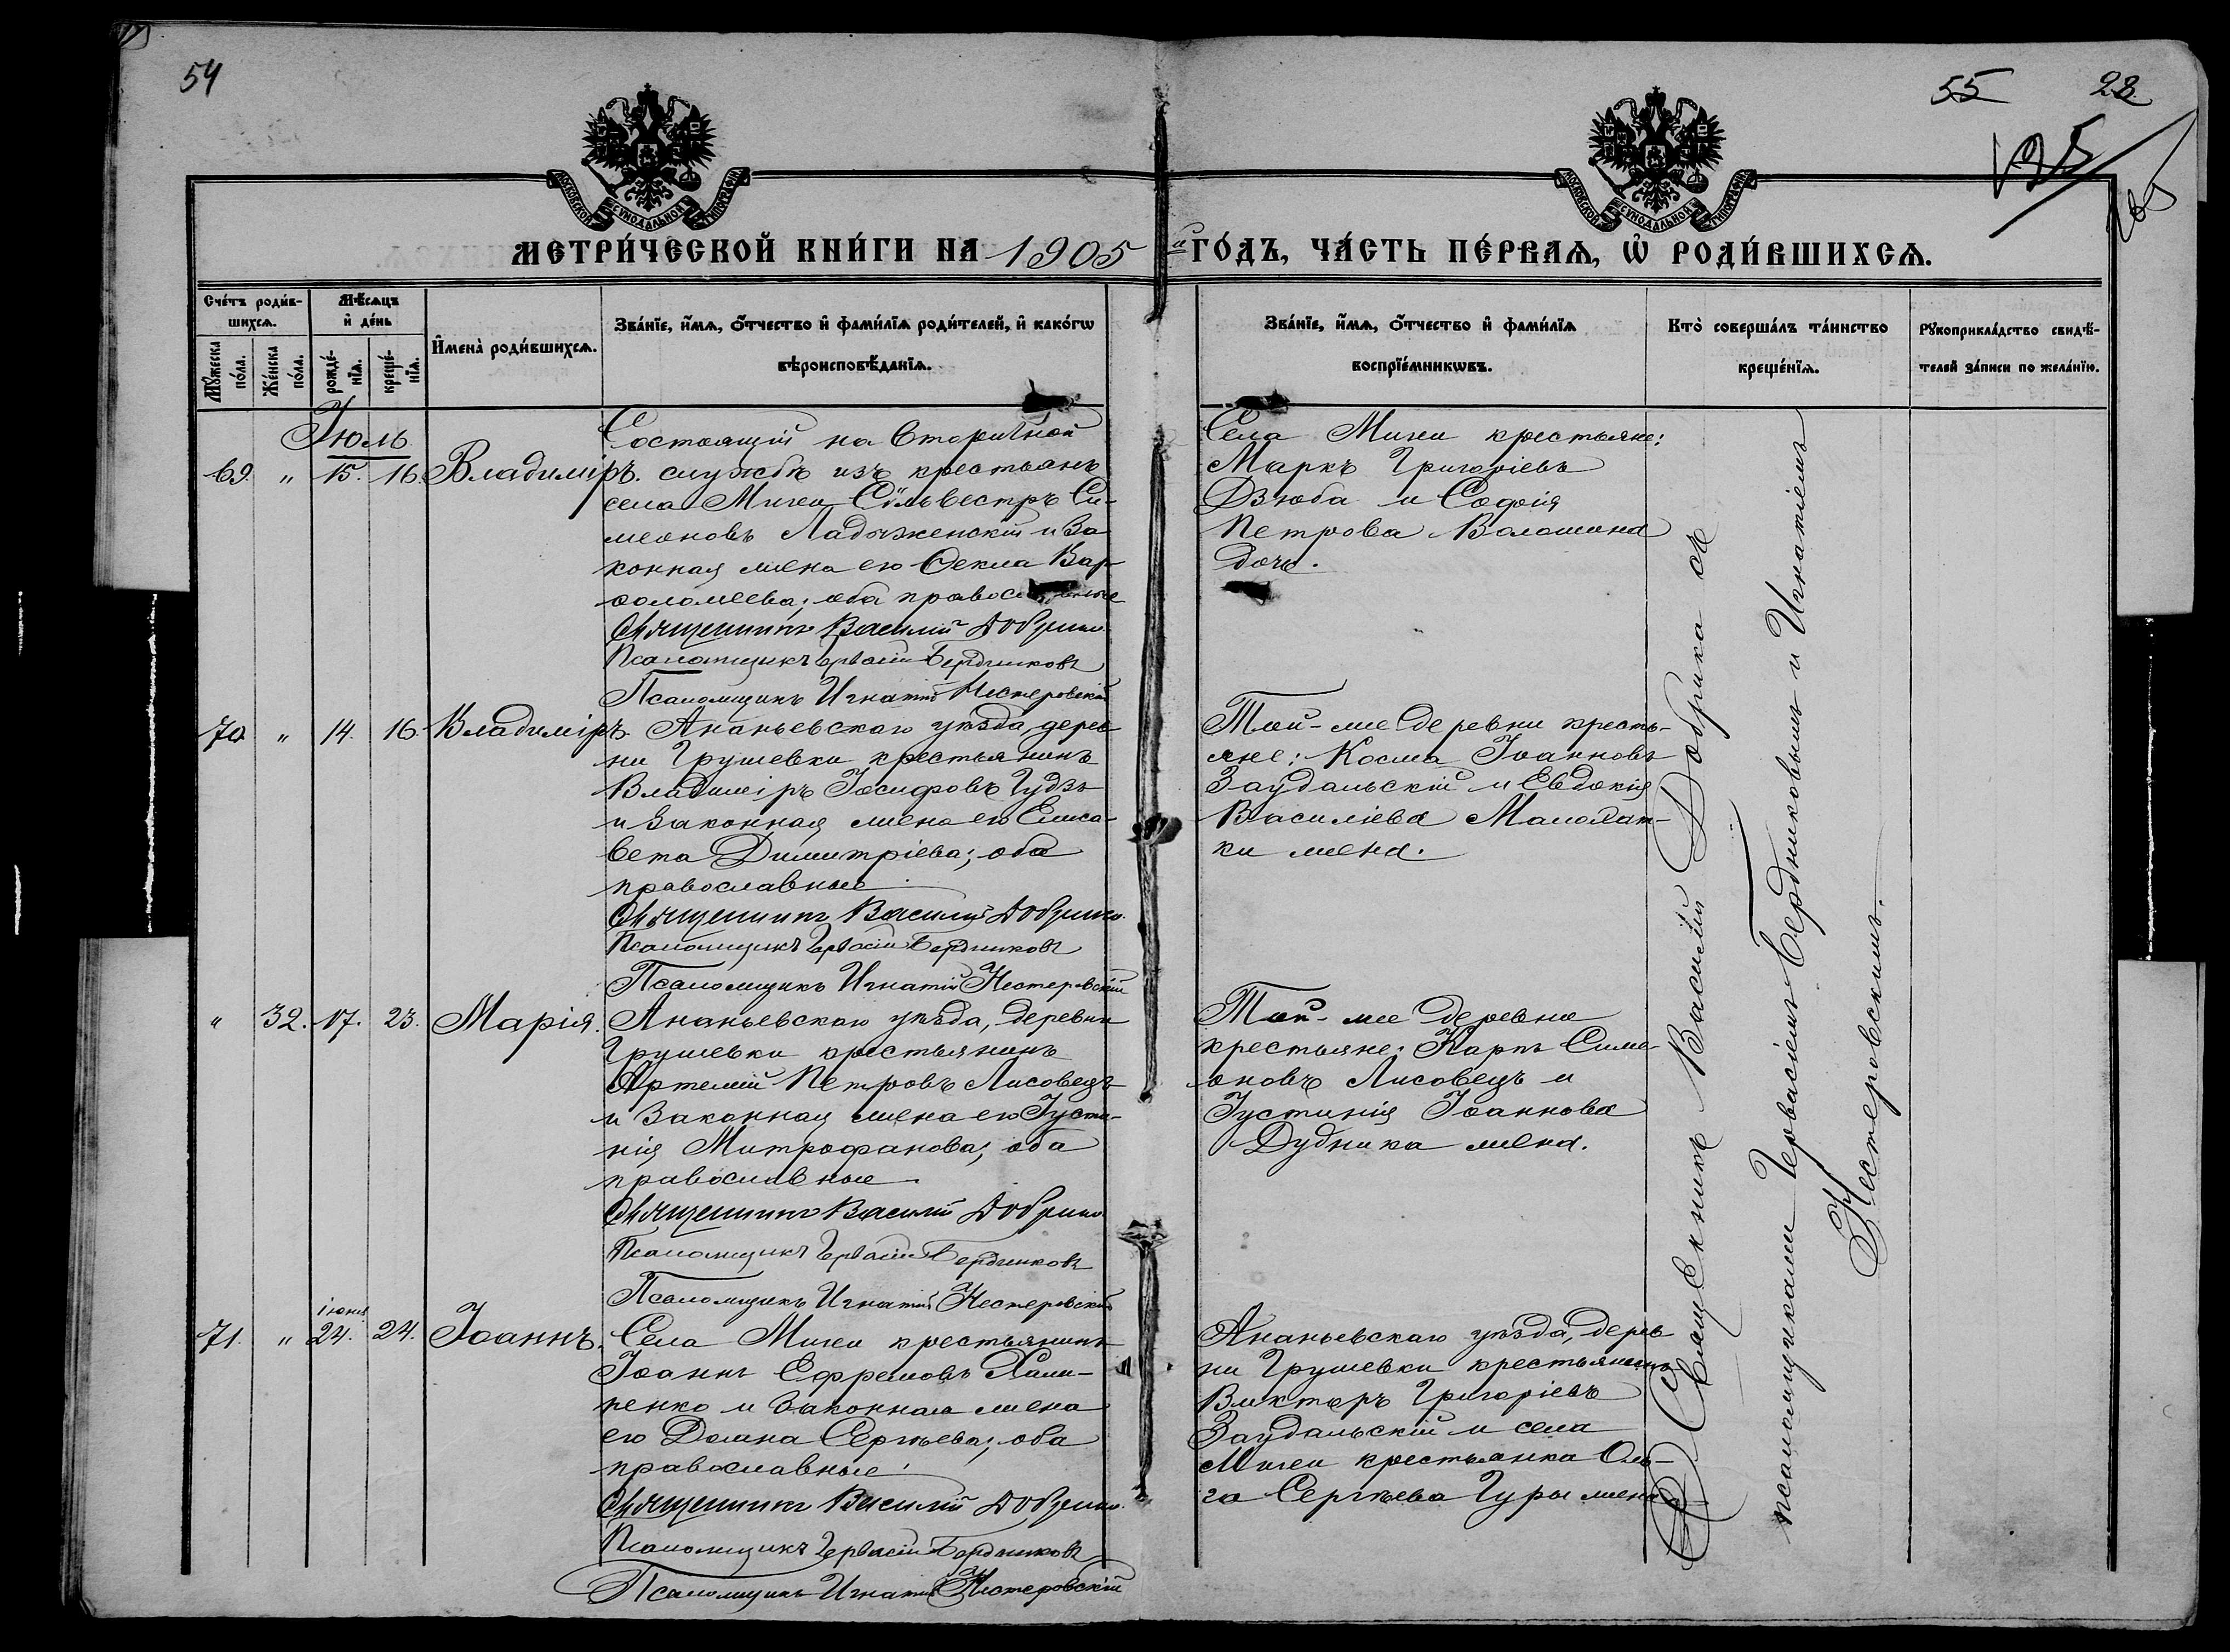 54
55 28.
МОСКОВСКОЙ СѴНОДАЛЬНОЙ ТИПОГРАФІИ
МОСКОВСКОЙ СѴНОДАЛЬНОЙ ТИПОГРАФІИ
МЕТРИ́ЧЕСКОЙ КНИ́ГИ НА 1905 й ГО́ДЪ, ЧА́СТЬ ПЕ́РВАѦ, Ѡ҆ РОДИ́ВШИХСѦ.
Сче́тъ роди́в-
шихсѧ.
Мꙋ́жеска
по́ла.
Же́нска
по́ла.
Мѣ́сѧцъ
и҆ де́нь
рожде́-
нїѧ.
креще́-
нїѧ.
И҆мена̀ роди́вшихсѧ.
Зва́нїе, и҆́мѧ, ѻ҆́тчество и҆ фами́лїѧ роди́телей, и҆ како́гѡ
вѣроисповѣ́данїѧ.
Зва́нїе, и҆́мѧ, ѻ҆́тчество и҆ фами́лїѧ
воспрїе́мникѡвъ.
Кто̀ соверша́лъ та́инство
креще́нїѧ.
Рꙋкоприкла́дство свидѣ́-
телей за́писи по жела́нїю.
Іюль
69. " 15. 16. Владиміръ.
Состоящій на вторичной
службѣ изъ крестьянъ
села Мигеи Сильвестръ Си-
меоновъ Ладыженскій и за
конная жена его Ѳекла Вар-
ѳоломеева; оба православные
Священникъ Василій Добрико
Псаломщикъ Гервасій Бердниковъ
Псаломщикъ Игнатій Нестеровскій
Села Мигеи крестьяне:
Маркъ Григоріевъ
Дзюба и Софія
Петрова Волошина
дочь.
70 " 14. 16. Владиміръ.
Ананьевскаго уѣзда, дерев
ни Грушевки крестьянинъ
Владиміръ Іосифовъ Гудзь
и законная жена его Елиса-
вета Димитріева; оба
православные
Священникъ Василій Добрико.
Псаломщикъ Гервасій Бердниковъ
Псаломщикъ Игнатій Нестеровскій
Той-же деревни кресть-
яне: Косма Іоанновъ
Заудальскій и Евдокія
Василіева
ки жена.
" 32. 17. 23. Марія.
Ананьевскаго уѣзда, деревни
Грушевки крестьянинъ
Артемій Петровъ Лисовецъ
и законная жена его Іусти-
нія Митрофанова; оба
православные
Священникъ Василій Добрико
Псаломщикъ Гервасій Бердниковъ
Псаломщикъ Игнатій Нестеровскій
Той-же деревни
крестьяне: Карпъ Симе-
оновъ Лисовецъ и
Іустинія Іоаннова
Дудника жена.
іюня
71. " 24. 24. Іоаннъ.
Села Мигеи крестьянинъ
Іоаннъ Ефремовъ
ненко и законная жена
его Домна Сергѣева; оба
православные
Священникъ Василій Добрико.
Псаломщикъ Гервасій Бердниковъ
Псаломщикъ Игнатій Нестеровскій
Ананьевскаго уѣзда, дерев
ни Грушевки крестьянинъ
Викторъ Григоріевъ
Заудальскій и села
Мигеи крестьянка Оль-
га Сергѣева Гуры жена
Священникъ Василій Добрика съ
псаломщиками Гервасіемъ Бердниковымъ и Игнатіемъ
Нестеровскимъ.